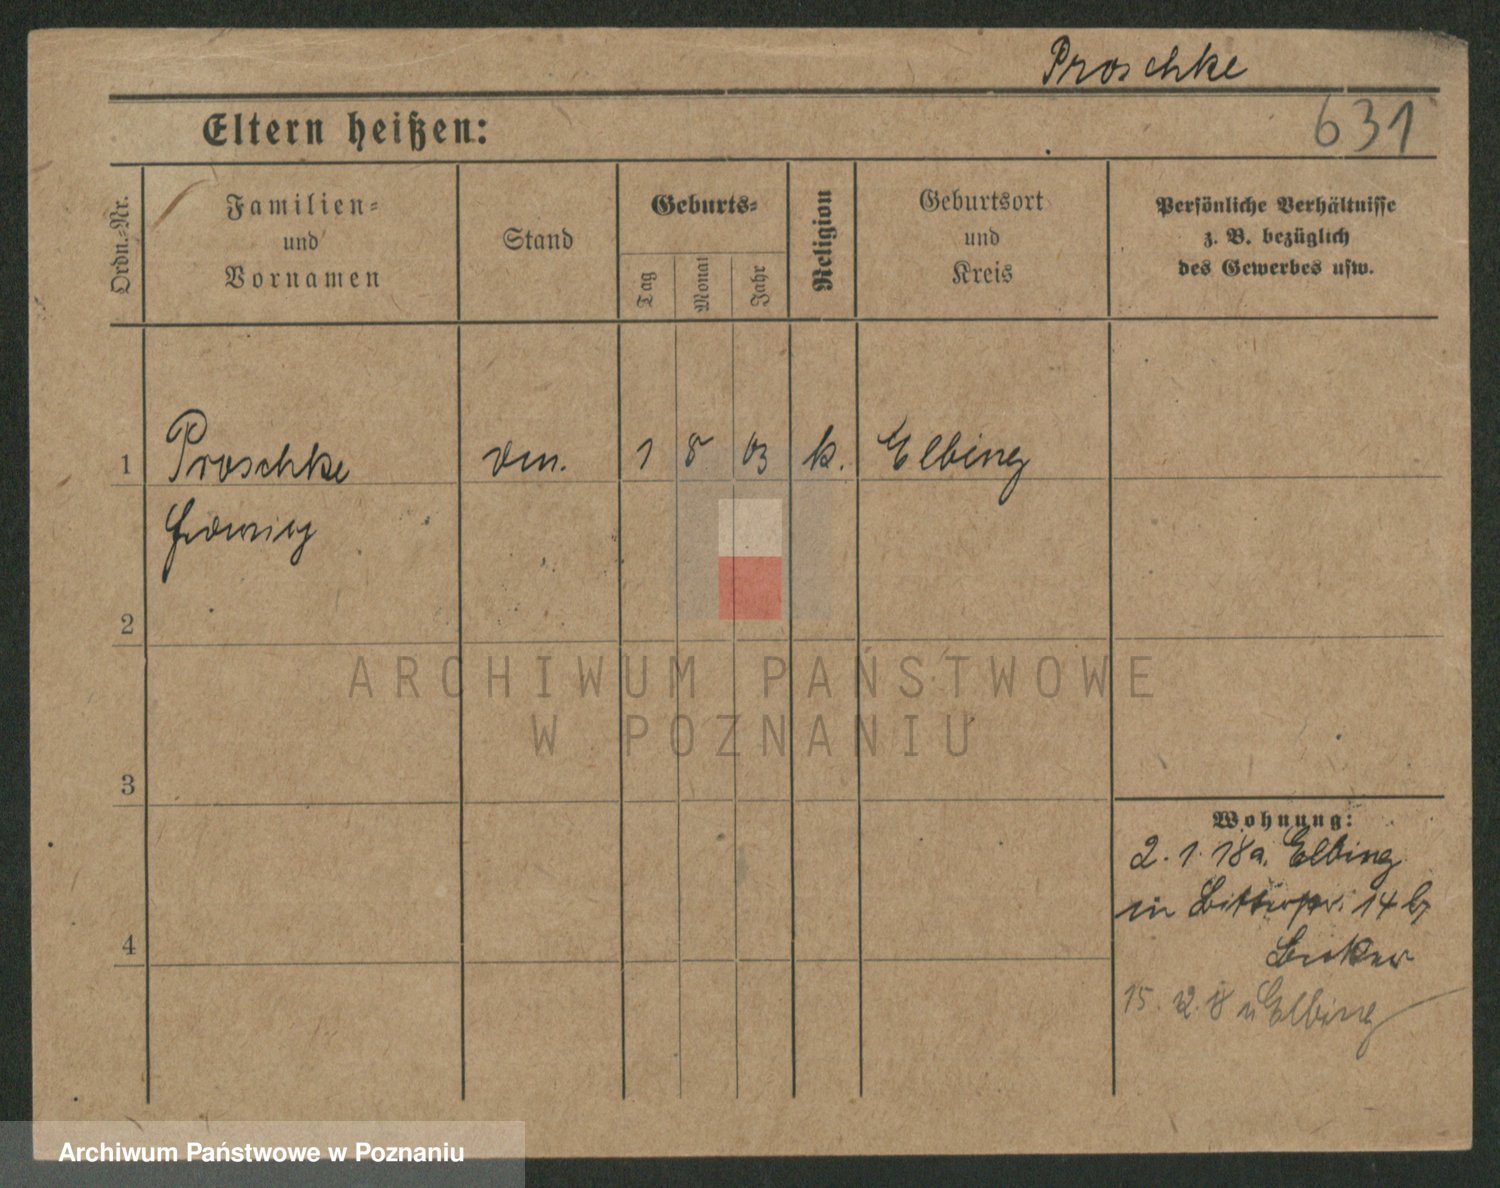 Proschke
Eltern heißen:
631
Ordn.-Nr.
Familien-
und
Vornamen
Stand
Geburts-
Tag
Monat
Jahr
Religion
Geburtsort
und
Kreis
Persönliche Verhältnisse
z. B. bezüglich
des Gewerbes usw.
1
Proschke
1 8 03 k. Elbing
Hedwig
2
ARCHIWUM PAŃSTWOWE
W POZNANIU
3
Wohnung:
2. 1. 18 a. Elbing
14 b/
4
15. 12. 18 n Elbing
Archiwum Państwowe w Poznaniu